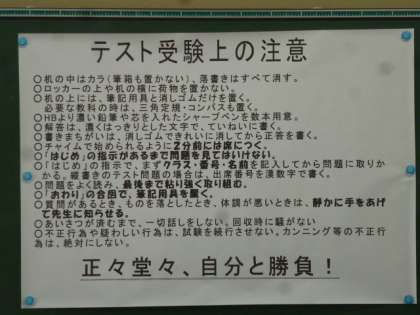 テスト受験上の注意
○机の中はカラ(筆箱も置かない)、落書きはすべて消す。
○ロッカーの上や机の横に荷物を置かない。
○机の上には、筆記用具と消しゴムだけを置く。
必要な教科の時は、三角定規・コンパスも置く。
○HBより濃い鉛筆や芯を入れたシャープペンを数本用意。
○解答は、濃くはっきりとした文字で、ていねいに書く。
○書きまちがいは、消しゴムできれいに消してから正答を書く。
○チャイムで始められるように2分前には席につく。
○「はじめ」の指示があるまで問題を見てはいけない。
○「はじめ」の指示で、まずクラス・番号・名前を記入してから問題に取りか
かる。縦書きのテスト問題の場合は、出席番号を漢数字で書く。
○問題をよく読み、最後まで粘り強く取り組む。
○「おわり」の合図で、筆記用具を置く。
○質問があるとき、ものを落としたとき、体調が悪いときは、静かに手をあげ
て先生に知らせる。
○あいさつが済むまで、一切話しをしない。回収時に騒がない
○不正行為や疑わしい行為は、試験を続行させない。カンニング等の不正行為
は、絶対にしない。
正々堂々、自分と勝負!